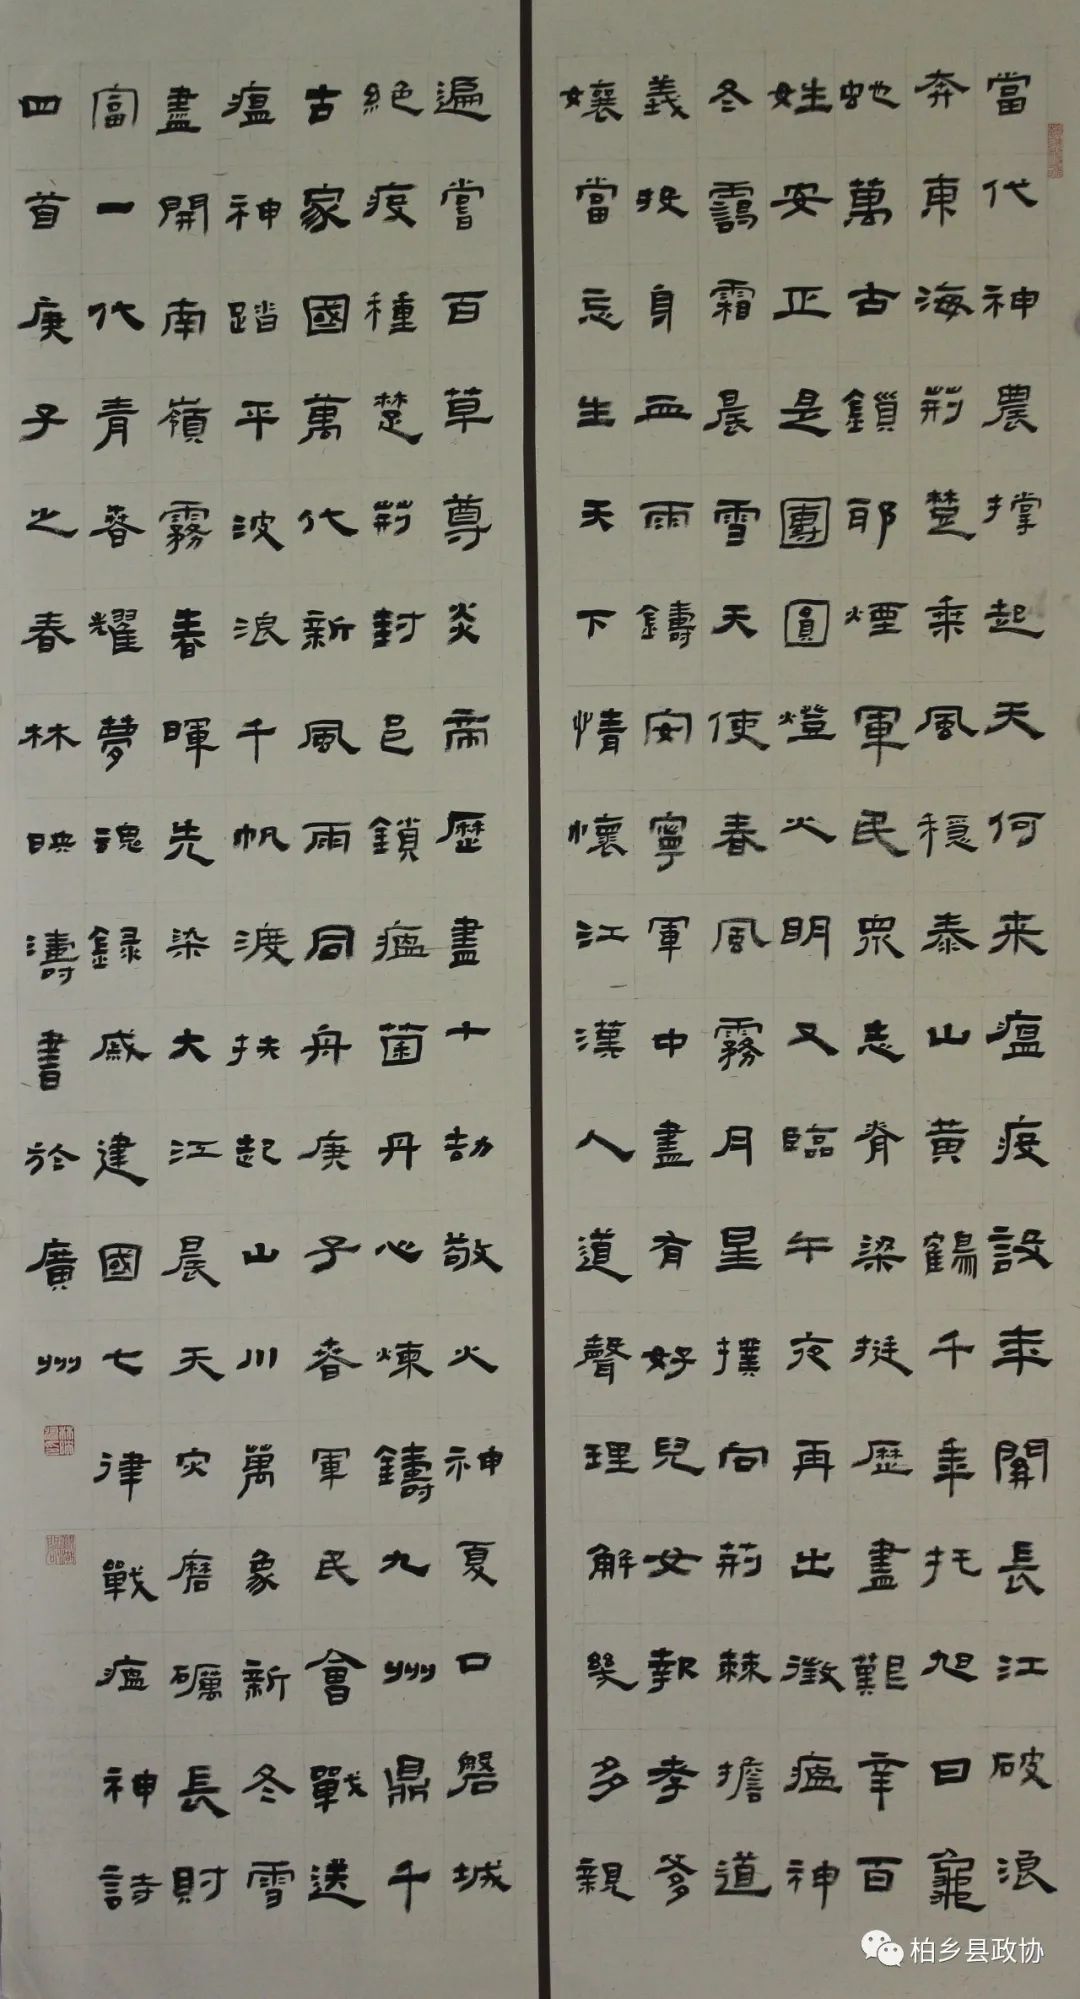 當代神農撐起天何来瘟疫設年關長江破浪
奔東海荊楚乘風穩泰山黃鶴千年托旭日龜
蛇萬古鎖邪煙軍民眾志脊梁挺歷盡艱辛百
姓安正是團圓燈火明又臨午夜再出徵瘟神
冬靄霜晨雪天使春風霧月星撲向荊棘擔道
義投身血雨鑄安寧軍中盡有好兒女報孝爹
孃當忘生天下情懷江漢人道聲理解幾多親
遍嘗百草尊炎帝歷盡十劫敬火神夏口磐城
絕疫種楚荊封邑鎖瘟菌丹心煉鑄九州鼎千
古家國萬代新風雨同舟庚子春軍民會戰送
瘟神踏平波浪千帆渡扶起山川萬象新冬雪
盡開南嶺霧春暉先染大江晨天灾磨礪長財
富一代青春耀夢魂録戚建國七律戰瘟神詩
四首庚子之春林映濤書於廣州
柏乡县政协